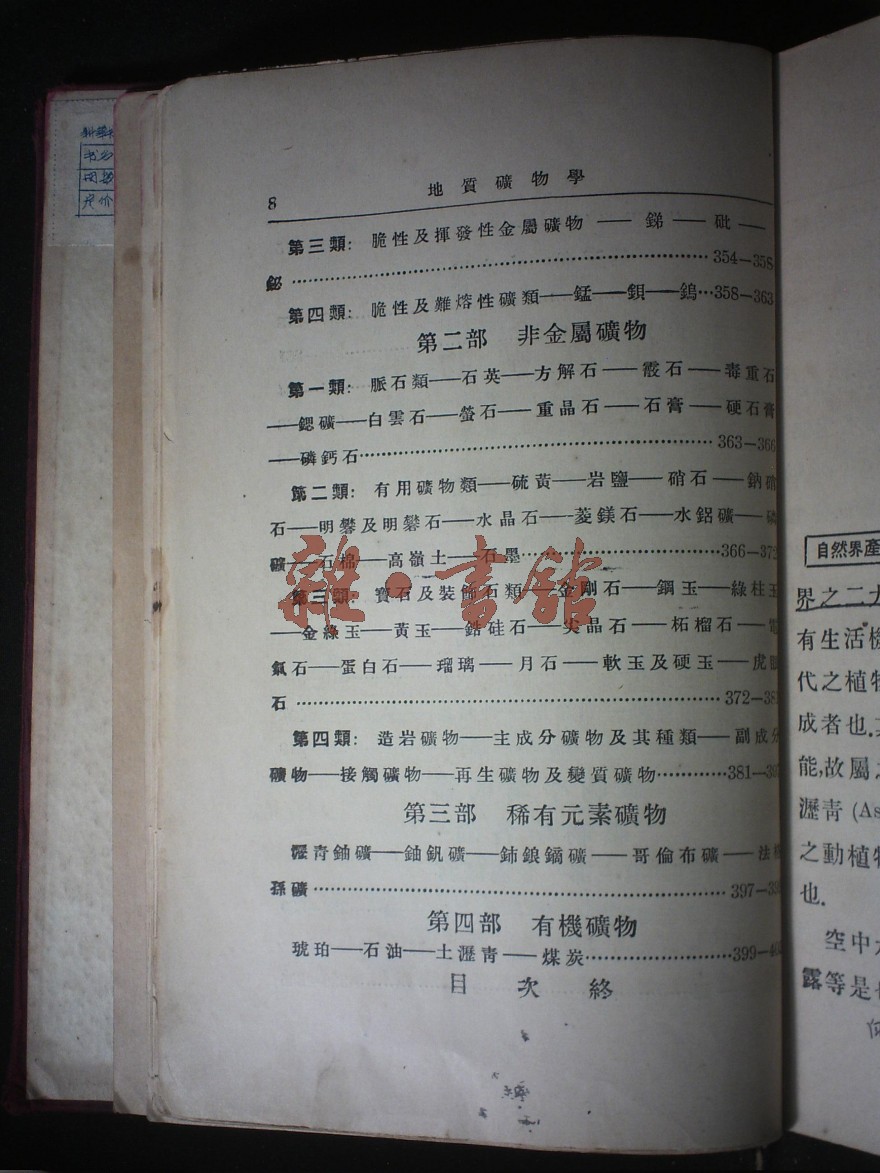 8
地質礦物學
第三類：脆性及揮發性金屬礦物——銻——砒——
鉍……354—358
第四類：脆性及難熔性礦類——錳——鋇——鎢…358—363
第二部 非金屬礦物
第一類：脈石類——石英——方解石——霰石——毒重石
——鍶礦——白雲石——螢石——重晶石——石膏——硬石膏
——磷鈣石……363—366
第二類：有用礦物類——硫黃——岩鹽——硝石——鈉硝
石——明礬及明礬石——水晶石——菱鎂石——水鋁礦——磷
礦——石棉——高嶺土——石墨……366—372
第三類：寶石及裝飾石類——金剛石——鋼玉——綠柱玉
——金綠玉——黃玉——鋯硅石——尖晶石——柘榴石——電
氣石——蛋白石——瑠璃——月石——軟玉及硬玉——虎眼
石……372—381
第四類：造岩礦物——主成分礦物及其種類——副成分
礦物——接觸礦物——再生礦物及變質礦物……381—397
第三部 稀有元素礦物
瀝青鈾礦——鈾釩礦——鈰鋃鏑礦——哥倫布礦——法
孫礦……397—
第四部 有機礦物
琥珀——石油——土瀝青——煤炭……399—
目次終
雜·書館
书名
定价
自然界產
界之二大
有生活機
代之植物
成者也.
能,故屬之
瀝青 (As
之動植物
也.
空中
露等是也